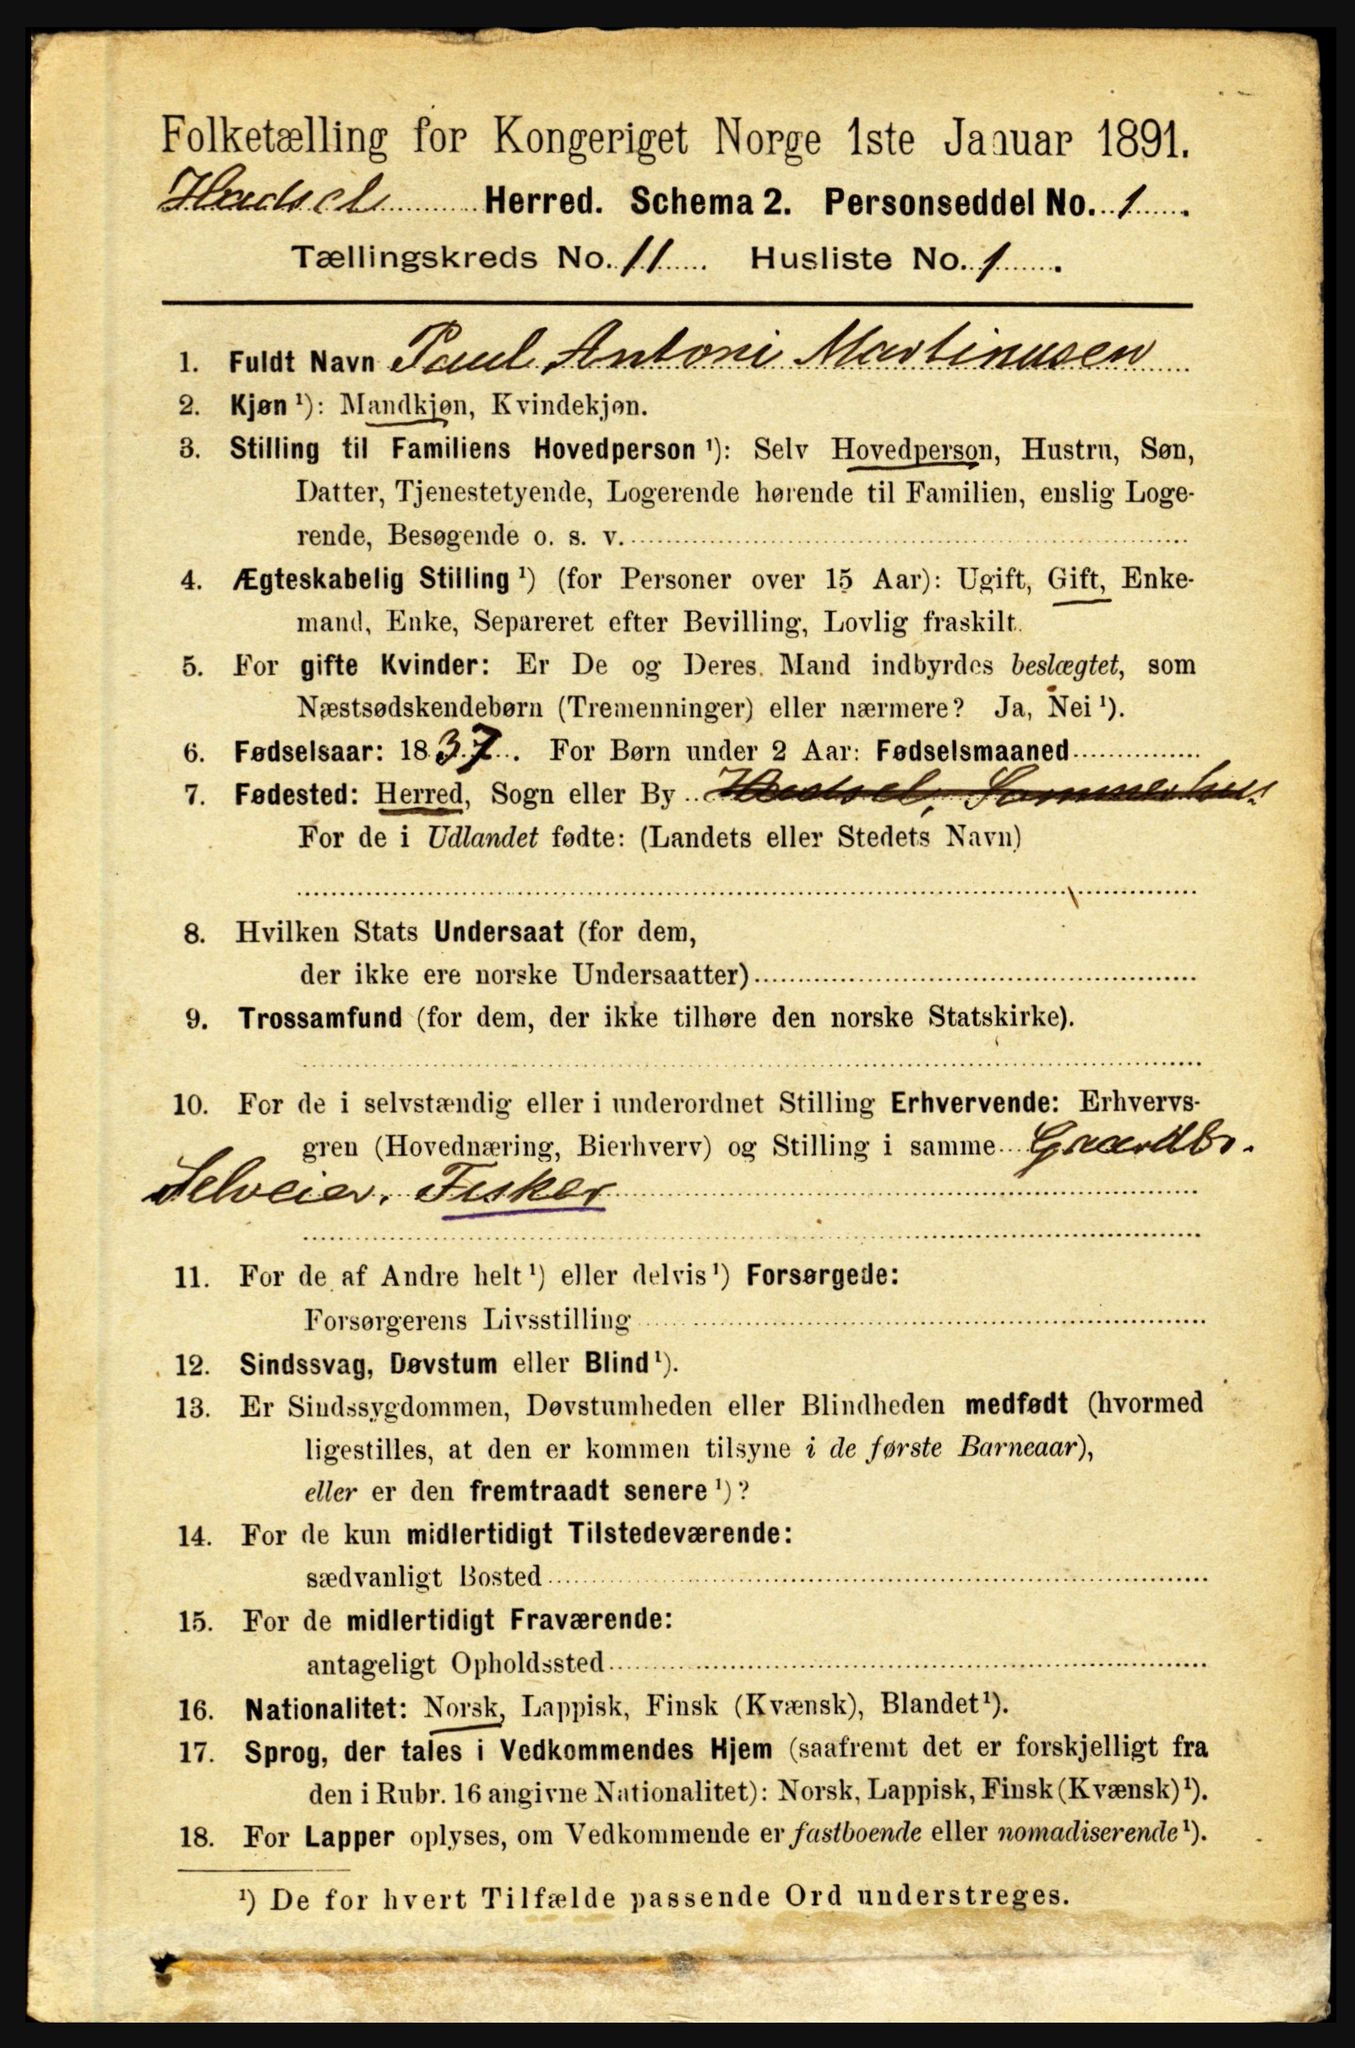 Folketælling for Kongeriget Norge 1ste Januar 1891.
Hadsel Herred. Schema 2. Personseddel No. 1.
Tællingskreds No. 11 Husliste No. 1.
1. Fuldt Navn Paul Antoni Martinusen
2. Kjøn ¹): Mandkjøn, Kvindekjøn.
3. Stilling til Familiens Hovedperson ¹): Selv Hovedperson, Hustru, Søn,
Datter, Tjenestetyende, Logerende hørende til Familien, enslig Loge-
rende, Besøgende o. s. v.
4. Ægteskabelig Stilling ¹) (for Personer over 15 Aar): Ugift, Gift, Enke-
mand, Enke, Separeret efter Bevilling, Lovlig fraskilt.
5. For gifte Kvinder: Er De og Deres Mand indbyrdes beslægtet, som
Næstsødskendebørn (Tremenninger) eller nærmere? Ja, Nei ¹).
6. Fødselsaar: 1837. For Børn under 2 Aar: Fødselsmaaned
7. Fødested: Herred, Sogn eller By Hadsel,
For de i Udlandet fødte: (Landets eller Stedets Navn)
8. Hvilken Stats Undersaat (for dem,
der ikke ere norske Undersaatter)
9. Trossamfund (for dem, der ikke tilhøre den norske Statskirke).
10. For de i selvstændig eller i underordnet Stilling Erhvervende: Erhvervs-
gren (Hovednæring, Bierhverv) og Stilling i samme Gaardbr.
Selveier. Fisker
11. For de af Andre helt ¹) eller delvis ¹) Forsørgede:
Forsørgerens Livsstilling
12. Sindssvag, Døvstum eller Blind ¹).
13. Er Sindssygdommen, Døvstumheden eller Blindheden medfødt (hvormed
ligestilles, at den er kommen tilsyne i de første Barneaar),
eller er den fremtraadt senere ¹)?
14. For de kun midlertidigt Tilstedeværende:
sædvanligt Bosted
15. For de midlertidigt Fraværende:
antageligt Opholdssted
16. Nationalitet: Norsk, Lappisk, Finsk (Kvænsk), Blandet ¹).
17. Sprog, der tales i Vedkommendes Hjem (saafremt det er forskjelligt fra
den i Rubr. 16 angivne Nationalitet): Norsk, Lappisk, Finsk (Kvænsk) ¹).
18. For Lapper oplyses, om Vedkommende er fastboende eller nomadiserende ¹).
¹) De for hvert Tilfælde passende Ord understreges.